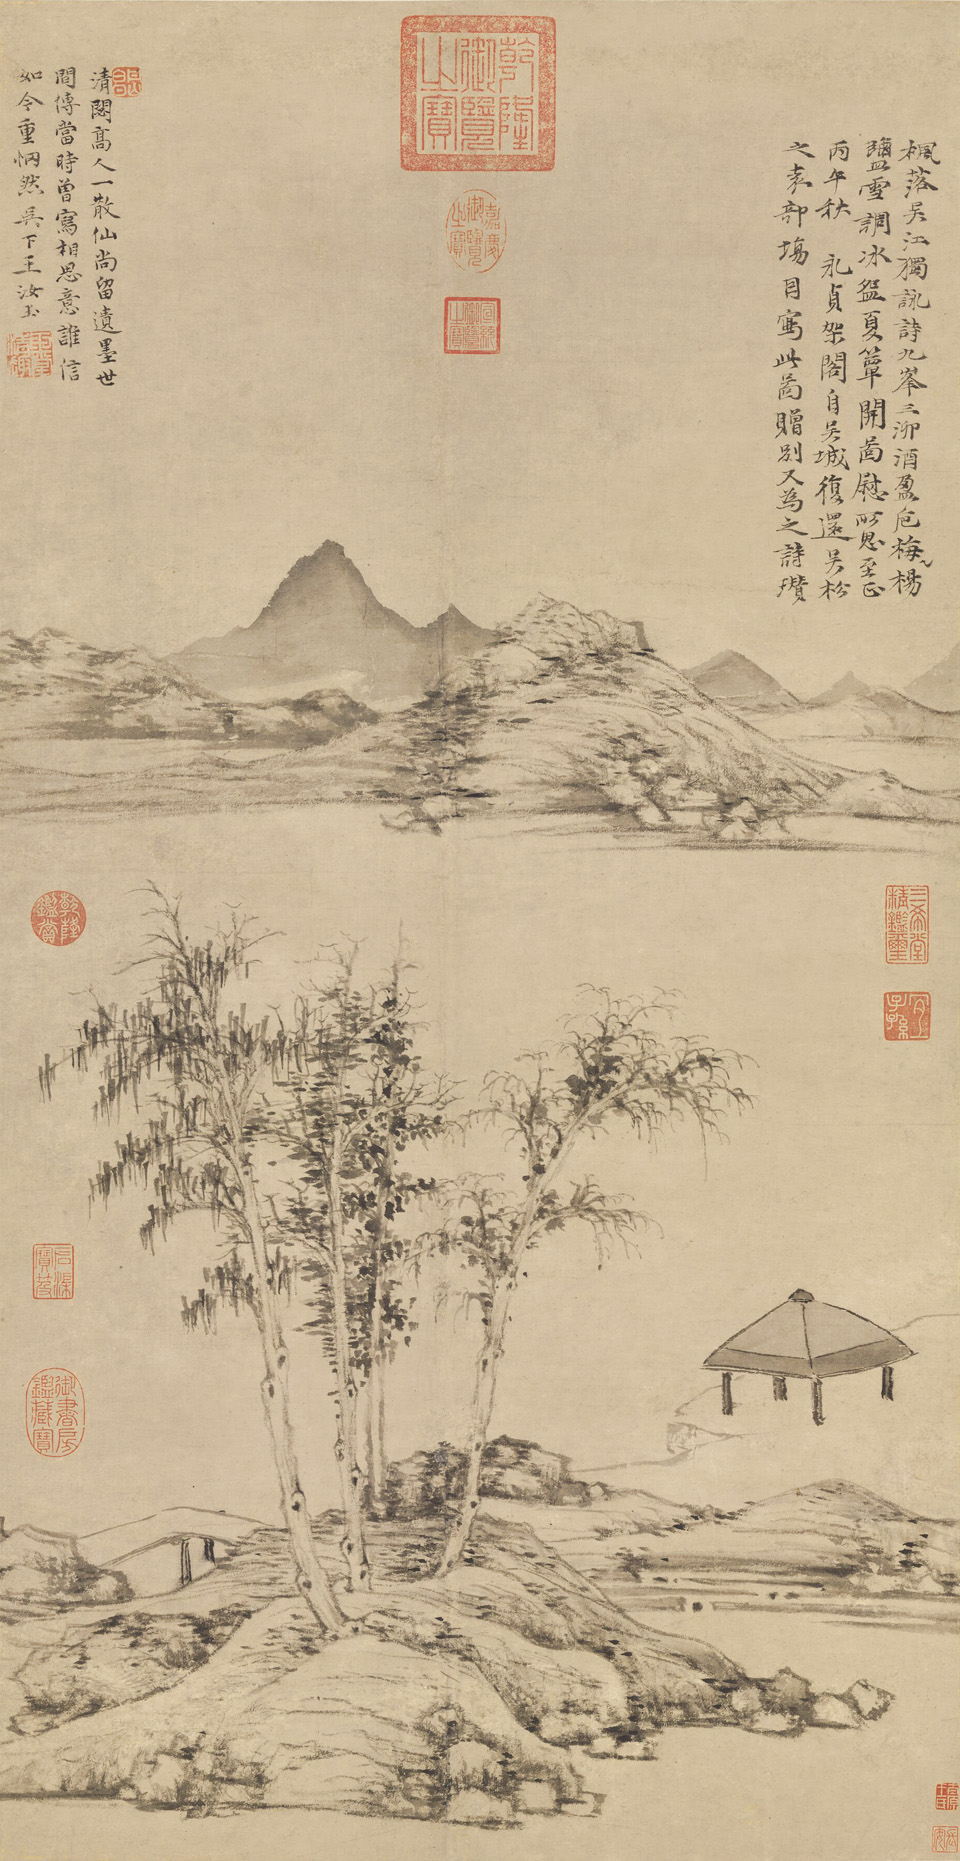 楓落吳江獨詠詩九峯三泖酒盈卮梅〻楊
鹽雪調冰盌夏簟開圖慰所思至正
丙午秋 永貞架閣自吳城復還吳松
之袁部場因寫此圖贈別又為之詩瓚
清閟高人一散仙尚留遺墨世
間傳當時曾寫相思意誰信
如今重惘然 吳下王汝玉
乾隆御覽之寶
嘉慶御覽之寶
宣統御覽之寶
乾隆鑑賞
三希堂精鑑璽
宜子孫
石渠寶笈
御書房鑑藏寶